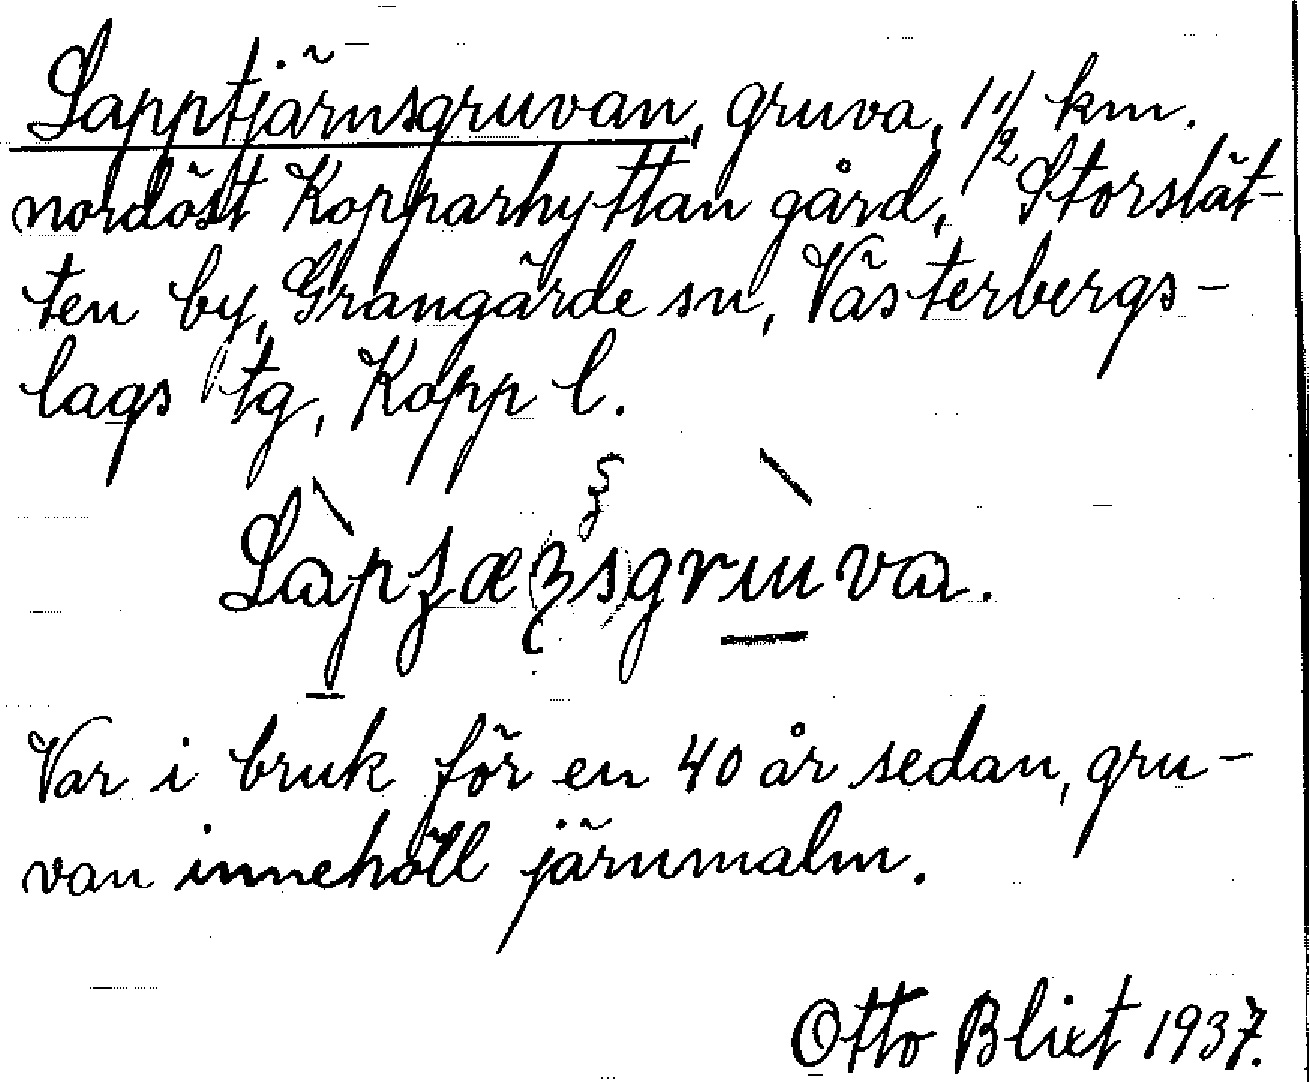 Lapptjärnsgruvan, gruva, 1 1/2 km.
nordöst Kopparhyttan gård, Storslät-
ten by, Grangärde sn, Västerbergs-
lags tg, Kopp l.
Var i bruk för en 40 år sedan, gru-
van innehöll järnmalm.
Otto Blixt 1937.